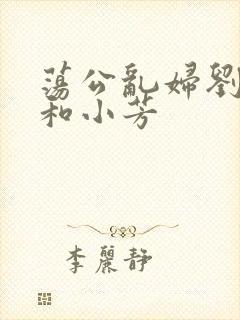 蕩公亂婦劉
和小芳
李麗靜